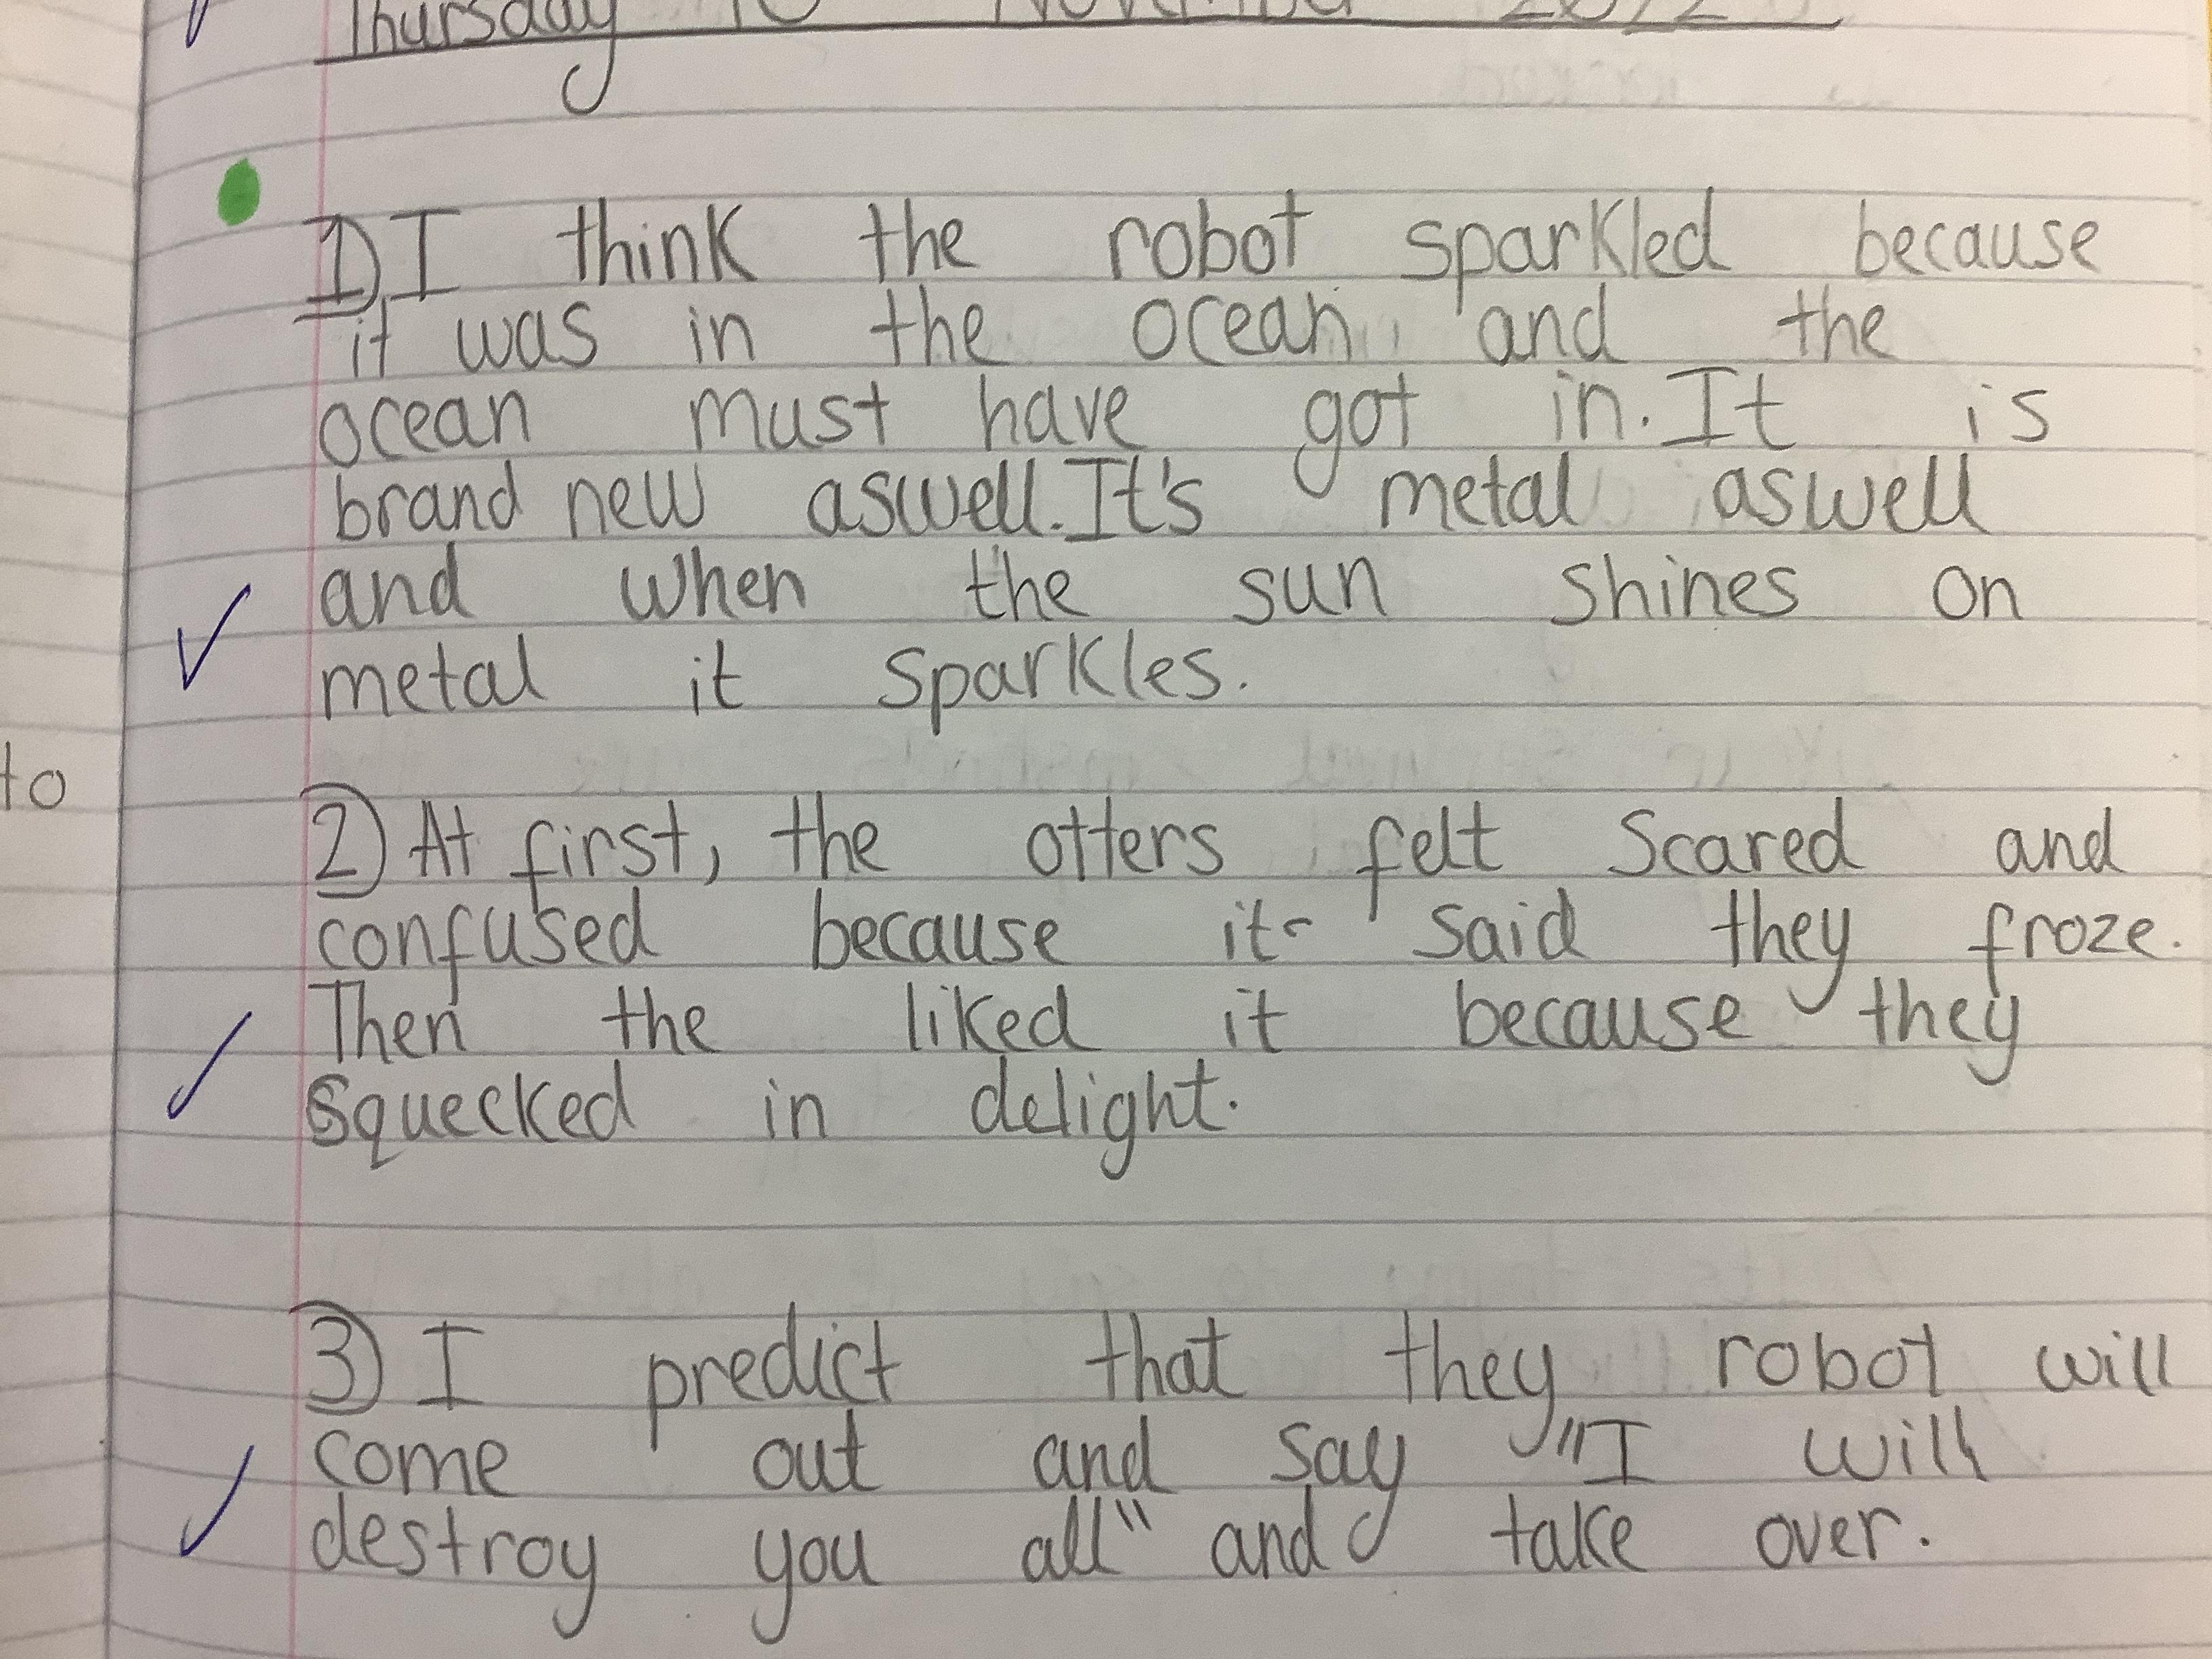 Thursday 10 November
1) I think the robot sparkled because
it was in the ocean and the
ocean must have got in. It is
brand new aswell. It's metal aswell
and when the sun shines on
metal it sparkles.
to
2) At first, the otters felt scared and
confused because it said they froze.
Then the liked it because they
squecked in delight.
3) I predict that they robot will
come out and say "I will
destroy you all" and take over.